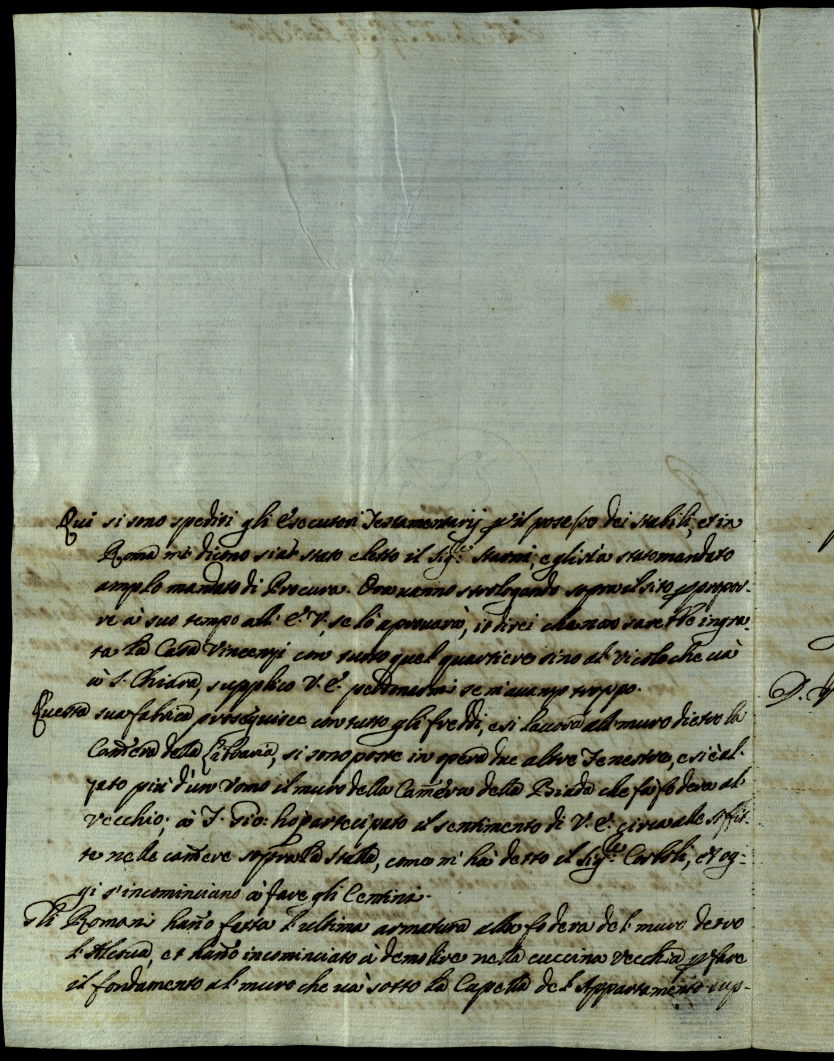 Qui si sono spediti gli Esecutori Testamentarij p il possesso dei stabili, et in
Roma mi dicono sia stato eletto il Sig.r Starni, e gli sia stato mandato
amplo mandato di Procura. Ora vanno strologando sopra il sito p propor-
re à suo tempo all' E. V. se lo aprovarà, io direi che non sarebbe ingra-
ta la Casa Vincenzi con tutto quel quartiere sino al vicolo che và
à S. Chiara, supplico V. E. perdonarmi se m'avanzo troppo.
Questa sua fabrica proseguisce con tutto gli freddi, e si lavora all muro dietro la
Camera della Libraria, si sono poste in opera due altre Fenestre, e si è al-
zato più d'un Uomo il muro della Camera della Biada che fa fodera al
vecchio; à F. Gio: ho partecipato il sentimento di V. E. circa alle soffit-
te nelle camere sopra la stalla, come m'hà detto il Sig.r Corboli, et og-
gi s'incominciano à fare gli Centini.
Gli Romani hanno fatta l'ultima armatura alla fodera del muro detro
l'Alcova, et hanno incominciato à demolire nella cuccina vecchia p fare
il fondamento al muro che và sotto la Capella del Appartamento sup-